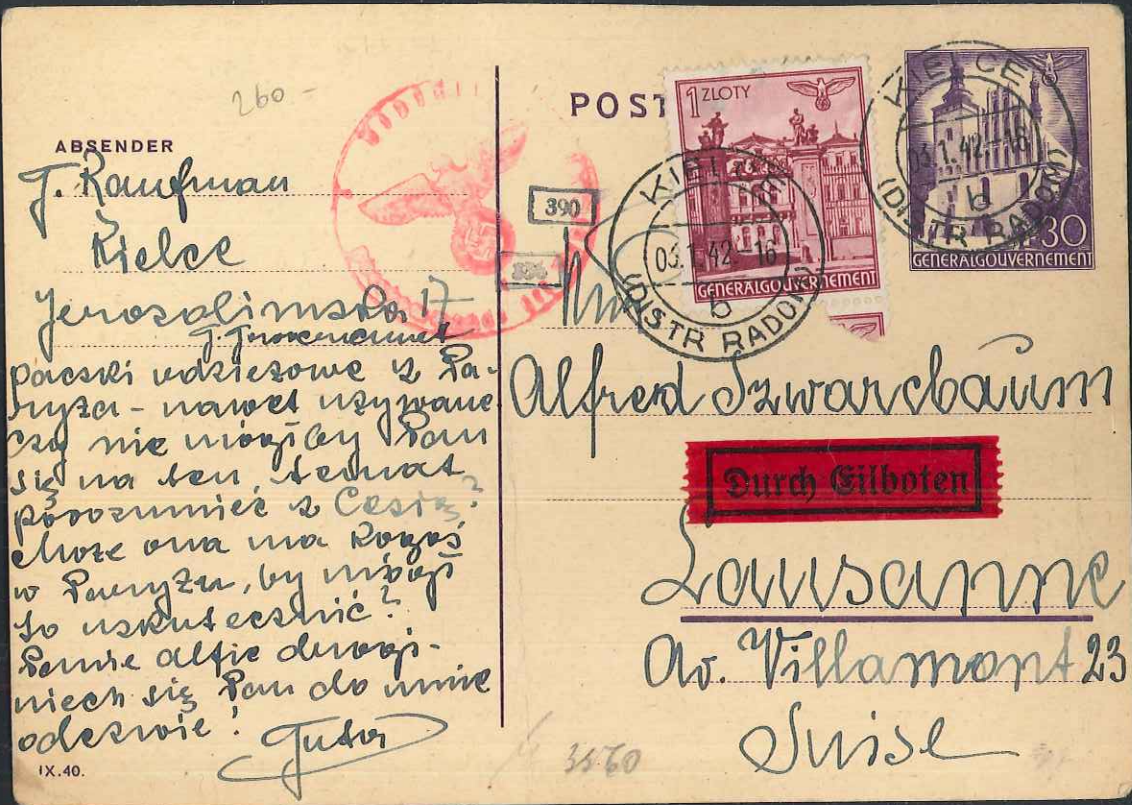 260 -
ABSENDER
J. Kaufman
Kielce
Jerozolimska 17
paczki odzieżowe z Pa-
ryża - nawet używane
czy nie mógłby Pan
się na ten temat
porozumieć z Cesią?
Może ona ma kogoś
w Paryżu, by mógł
to uskutecznić?
Panie Alfie drogi -
niech się Pan do mnie
odezwie!
Gutor
IX.40.
POST
390
1 ZLOTY
GENERALGOUVERNEMENT
KIELCE
03.1.42.-16
b
(DISTR RADOM)
30
GENERALGOUVERNEMENT
KIELCE
03.1.42.-16
b
(DISTR RADOM)
Alfred Szwarcbaum
Durch Eilboten
Lausanne
Av. Villamont 23
Suise
3560